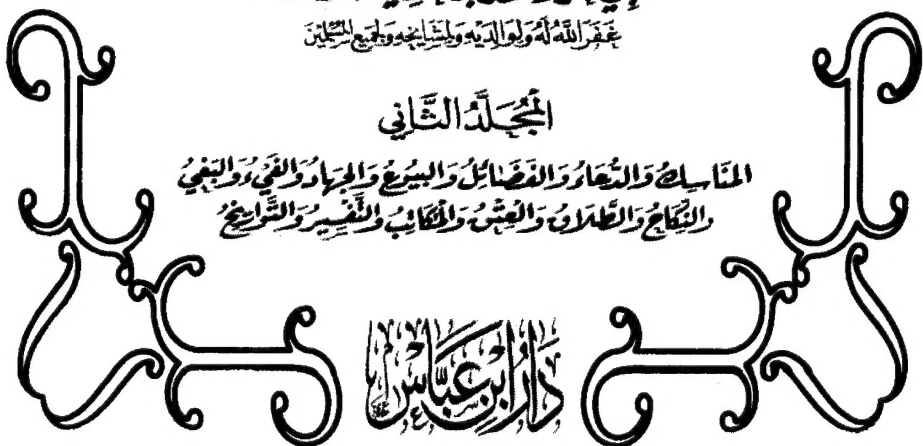 غَفَرَ اللَّهُ لَهُ وَلِوَالِدَيْهِ وَلِمَشَايِخِهِ وَلِجَمِيعِ الْمُسْلِمِيْنَ
الْمُجَلَّدُ الثَّانِي
المَنَاسِكُ وَالدُّعَاءُ وَالفَضَائِلُ وَالبُيُوعُ وَالجِهَادُ وَالفَيْءُ وَالبَغْيُ
وَالنِّكَاحُ وَالطَّلَاقُ وَالعِتْقُ وَالمُكَاتَبُ وَالتَّفْسِيرُ وَالتَّوَارِيخُ
دَارُ ابْنِ عَبَّاسٍ